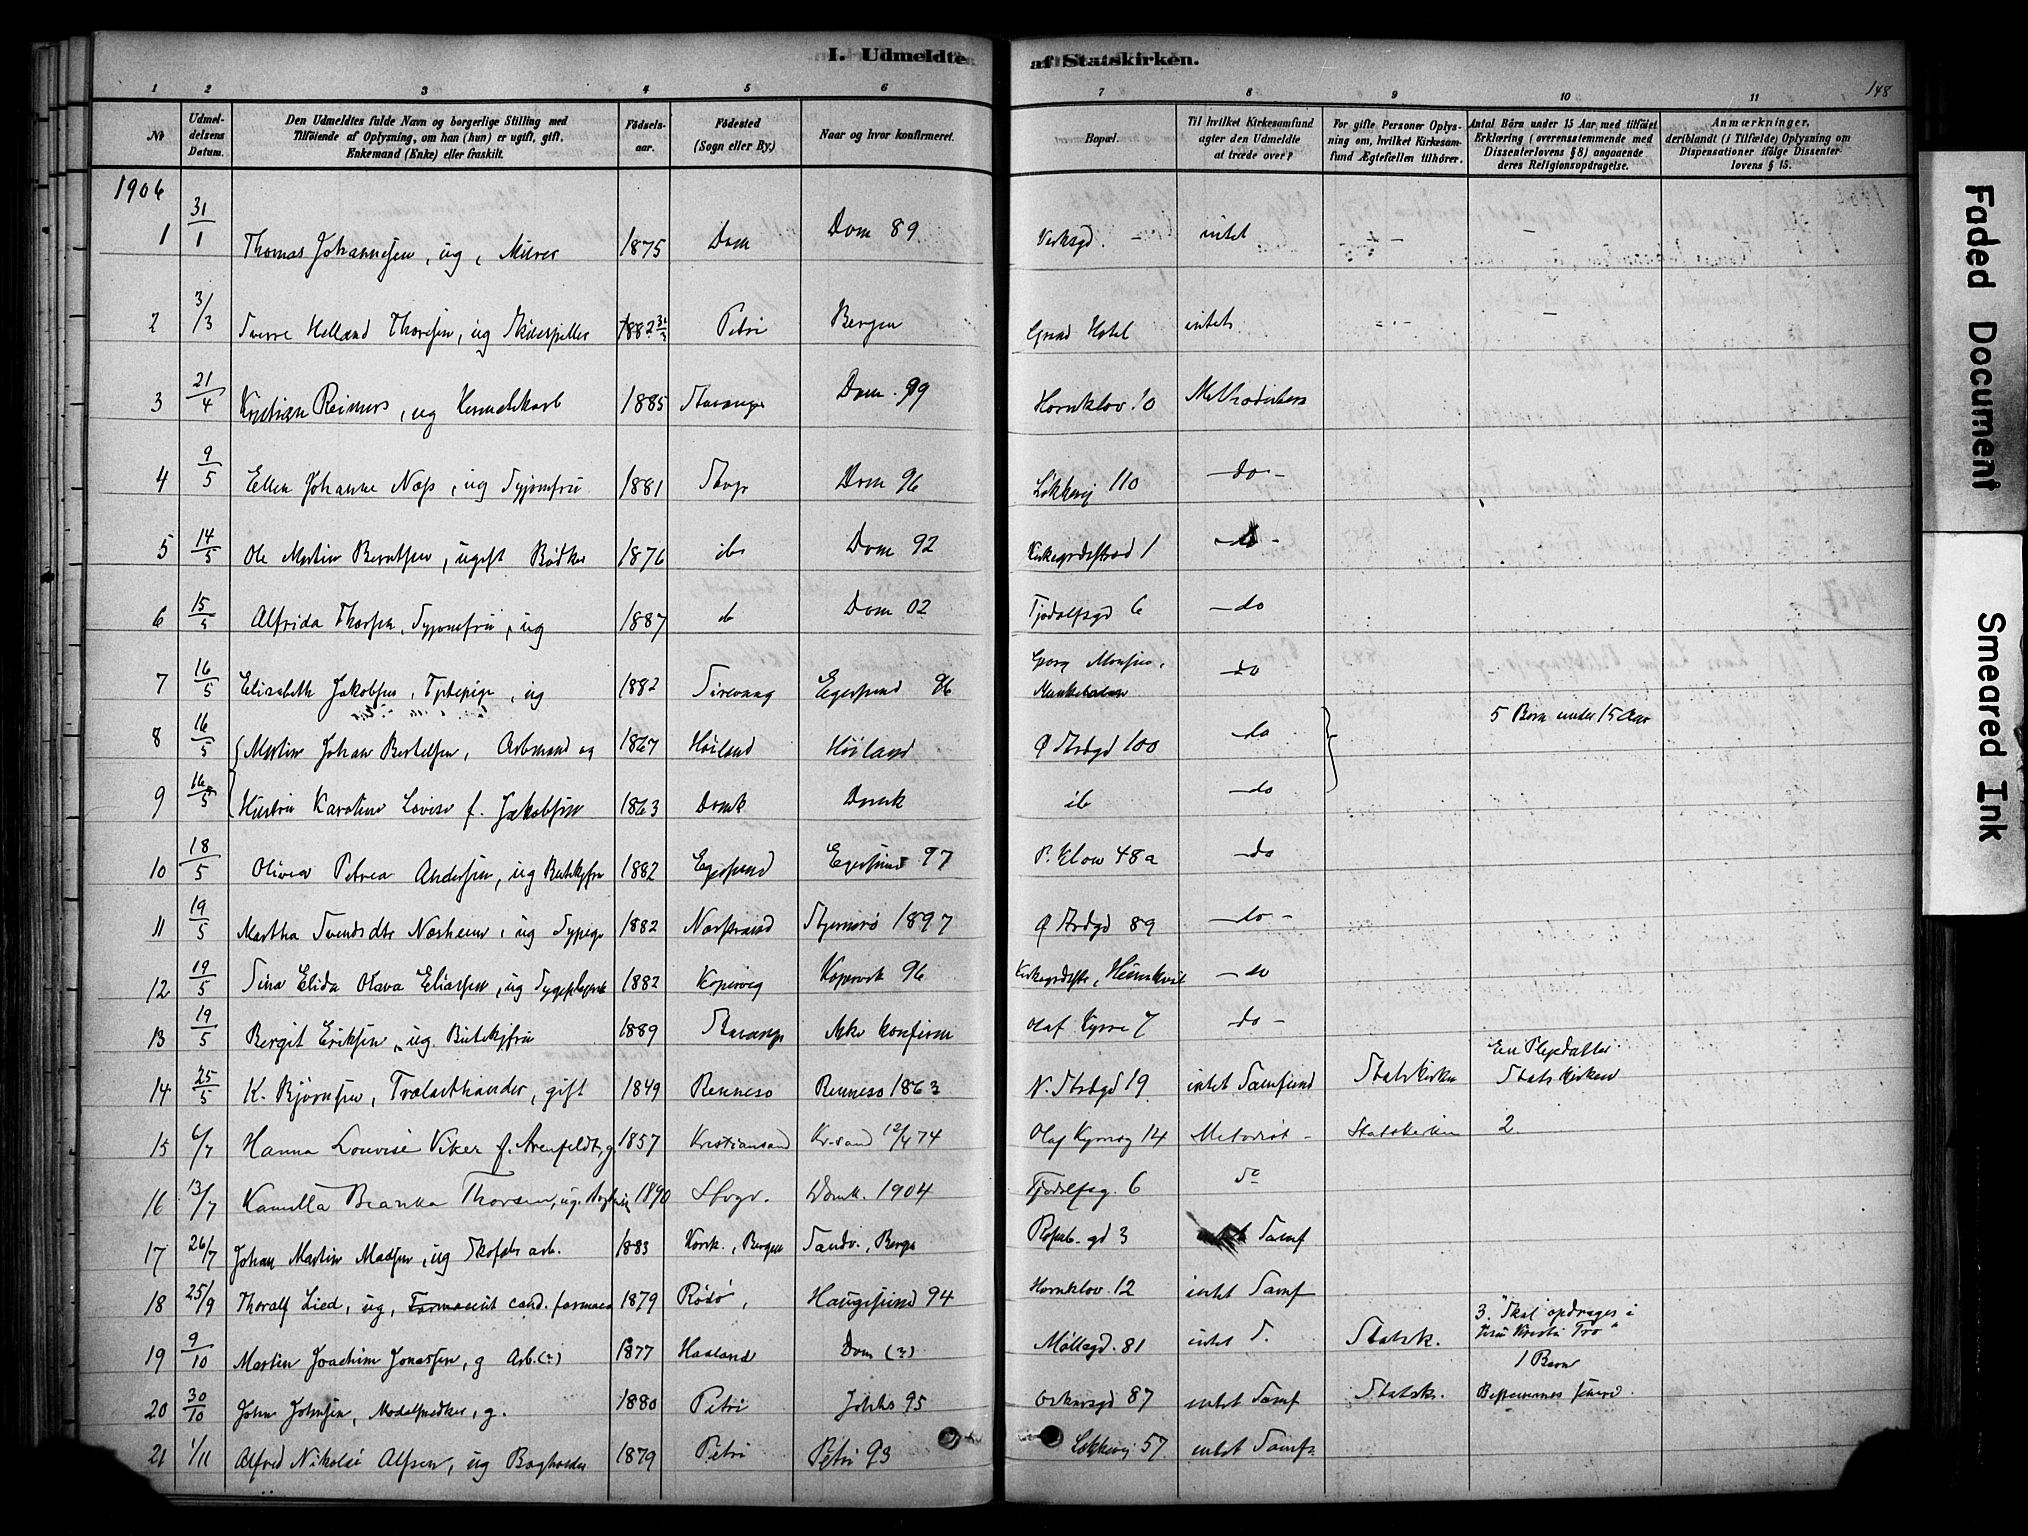 I. Udmeldte af Statskirken.
148
1 2 3 4 5 6 7 8 9 10 11
No
Udmeldelsens Datum.
Den Udmeldtes fulde Navn og borgerlige Stilling med
Tilføiende af Oplysning, om han (hun) er ugift, gift,
Enkemand (Enke) eller fraskilt.
Fødselsaar.
Fødested
(Sogn eller By.)
Naar og hvor konfirmeret.
Bopæl.
Til hvilket Kirkesamfund
agter den Udmeldte
at træde over?
For gifte Personer Oplysning om, hvilket Kirkesamfund Ægtefællen tilhører.
Antal Børn under 15 Aar, med tilføiet
Erklæring (overensstemmende med
Dissenterlovens § 8) angaaende
deres Religionsopdragelse.
Anmærkninger,
deriblandt (i Tilfælde) Oplysning om
Dispensationer ifølge Dissenterlovens § 15.
1906
1 31/1 Thomas Johannesen, ug, Murer 1875 Dom Dom 89 Verksgd. intet
2 3/3 Sverre Helland Thoresen, ug Skuespiller 1882 Petri Bergen Grand Hotel intet
3 21/4 Kristian Reimers, ug 1885 Stavanger Dom 99 Hornklov 10 Methodisten
4 9/5 Ellen Johanne Næss, ug Syjomfru 1881 Stvgr Dom 96 Løkkevej 110 do
5 14/5 Ole Martin Berntsen, ugift Bødker 1876 ib Dom 92 1 do
6 15/5 Alfrida Thorsen, Syjomfru, ug 1887 ib Dom 02 Tjodolfsgd 6 do
7 16/5 Elisabeth Jakobsen, ug 1882 Sirevaag Egersund 96 Georg Monsen, do
8 16/5 Martin Johan Bertelsen, Arbmand og 1867 Høiland Høiland Ø Strdgd 100 do 5 Børn under 15 Aar
9 16/5 Hustru Karoline Lovise f. Jakobsen 1863 Domk Domk ib do
10 18/5 Olivia Petrea Andersen, ug Butikjfru 1882 Egersund Egersund 97 P. Klow 48a do
11 19/5 Martha Svendsdtr Nesheim, ug Sypige 1882 Nærstrand Stjernerø 1897 Ø Strdgd 89 do
12 19/5 Sina Elida Olava Eliassen, ug 1882 Kopervig Kopervik 96 do
13 19/5 Bergit Eriksen, ug. Butikjfru 1889 Stavanger Ikke konfirm Olaf Kyrre 7 do
14 25/5 K. Bjørnsen, Trælasthandler, gift 1849 Rennesø Rennesø 1863 N. Strdgd 19 intet Samfund Statskirken En Plejedatter Statskirken
15 6/7 Hanna Lovise Viker f. Arenfeldt, g. 1857 Kristiansand Kr.sand 12/4 74 Olaf Kyrresg 14 Metodist Statskirken 2
16 13/7 Kamilla Bianka Thorsen, ug. 1890 Stvgr. Domk. 1904 Tjodolfsg. 6 do
17 26/7 Johan Martin Madsen, ug Skofabr arb. 1883 Korsk., Bergen Sandv., Bergen Rosenb. gd 3 intet Samf
18 25/9 Thoralf Lied, ug, Farmaceut cand. farmac 1879 Rødø, Haugesund 94 Hornklov 12 intet Samf
19 9/10 Martin Joachim Jonassen, g Arb. (?) 1877 Haaland Dom (?) Møllegd. 81 intet S. Statsk. 3. "Skal opdrages i Jesu Kristi Tro"
20 30/10 John Johnsen, Modelsnedker, g. 1880 Petri Johs 95 Oskarsgd 87 intet Samf Statsk. 1 Barn
21 1/11 Alfred Nikolai Alfsen, ug Bogholder 1879 Petri Petri 93 Løkkevej 57 intet Samf.
Faded Document
Smeared Ink